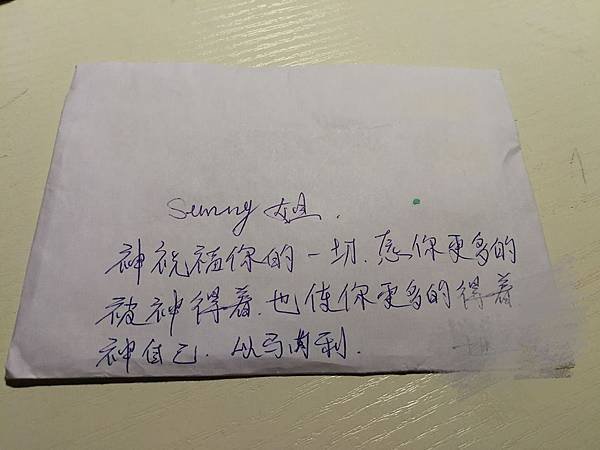 Sunny 姐.
神祝福你的一切.愿你更多的
被神得着.也使你更多的得着
神自己.以马内利.